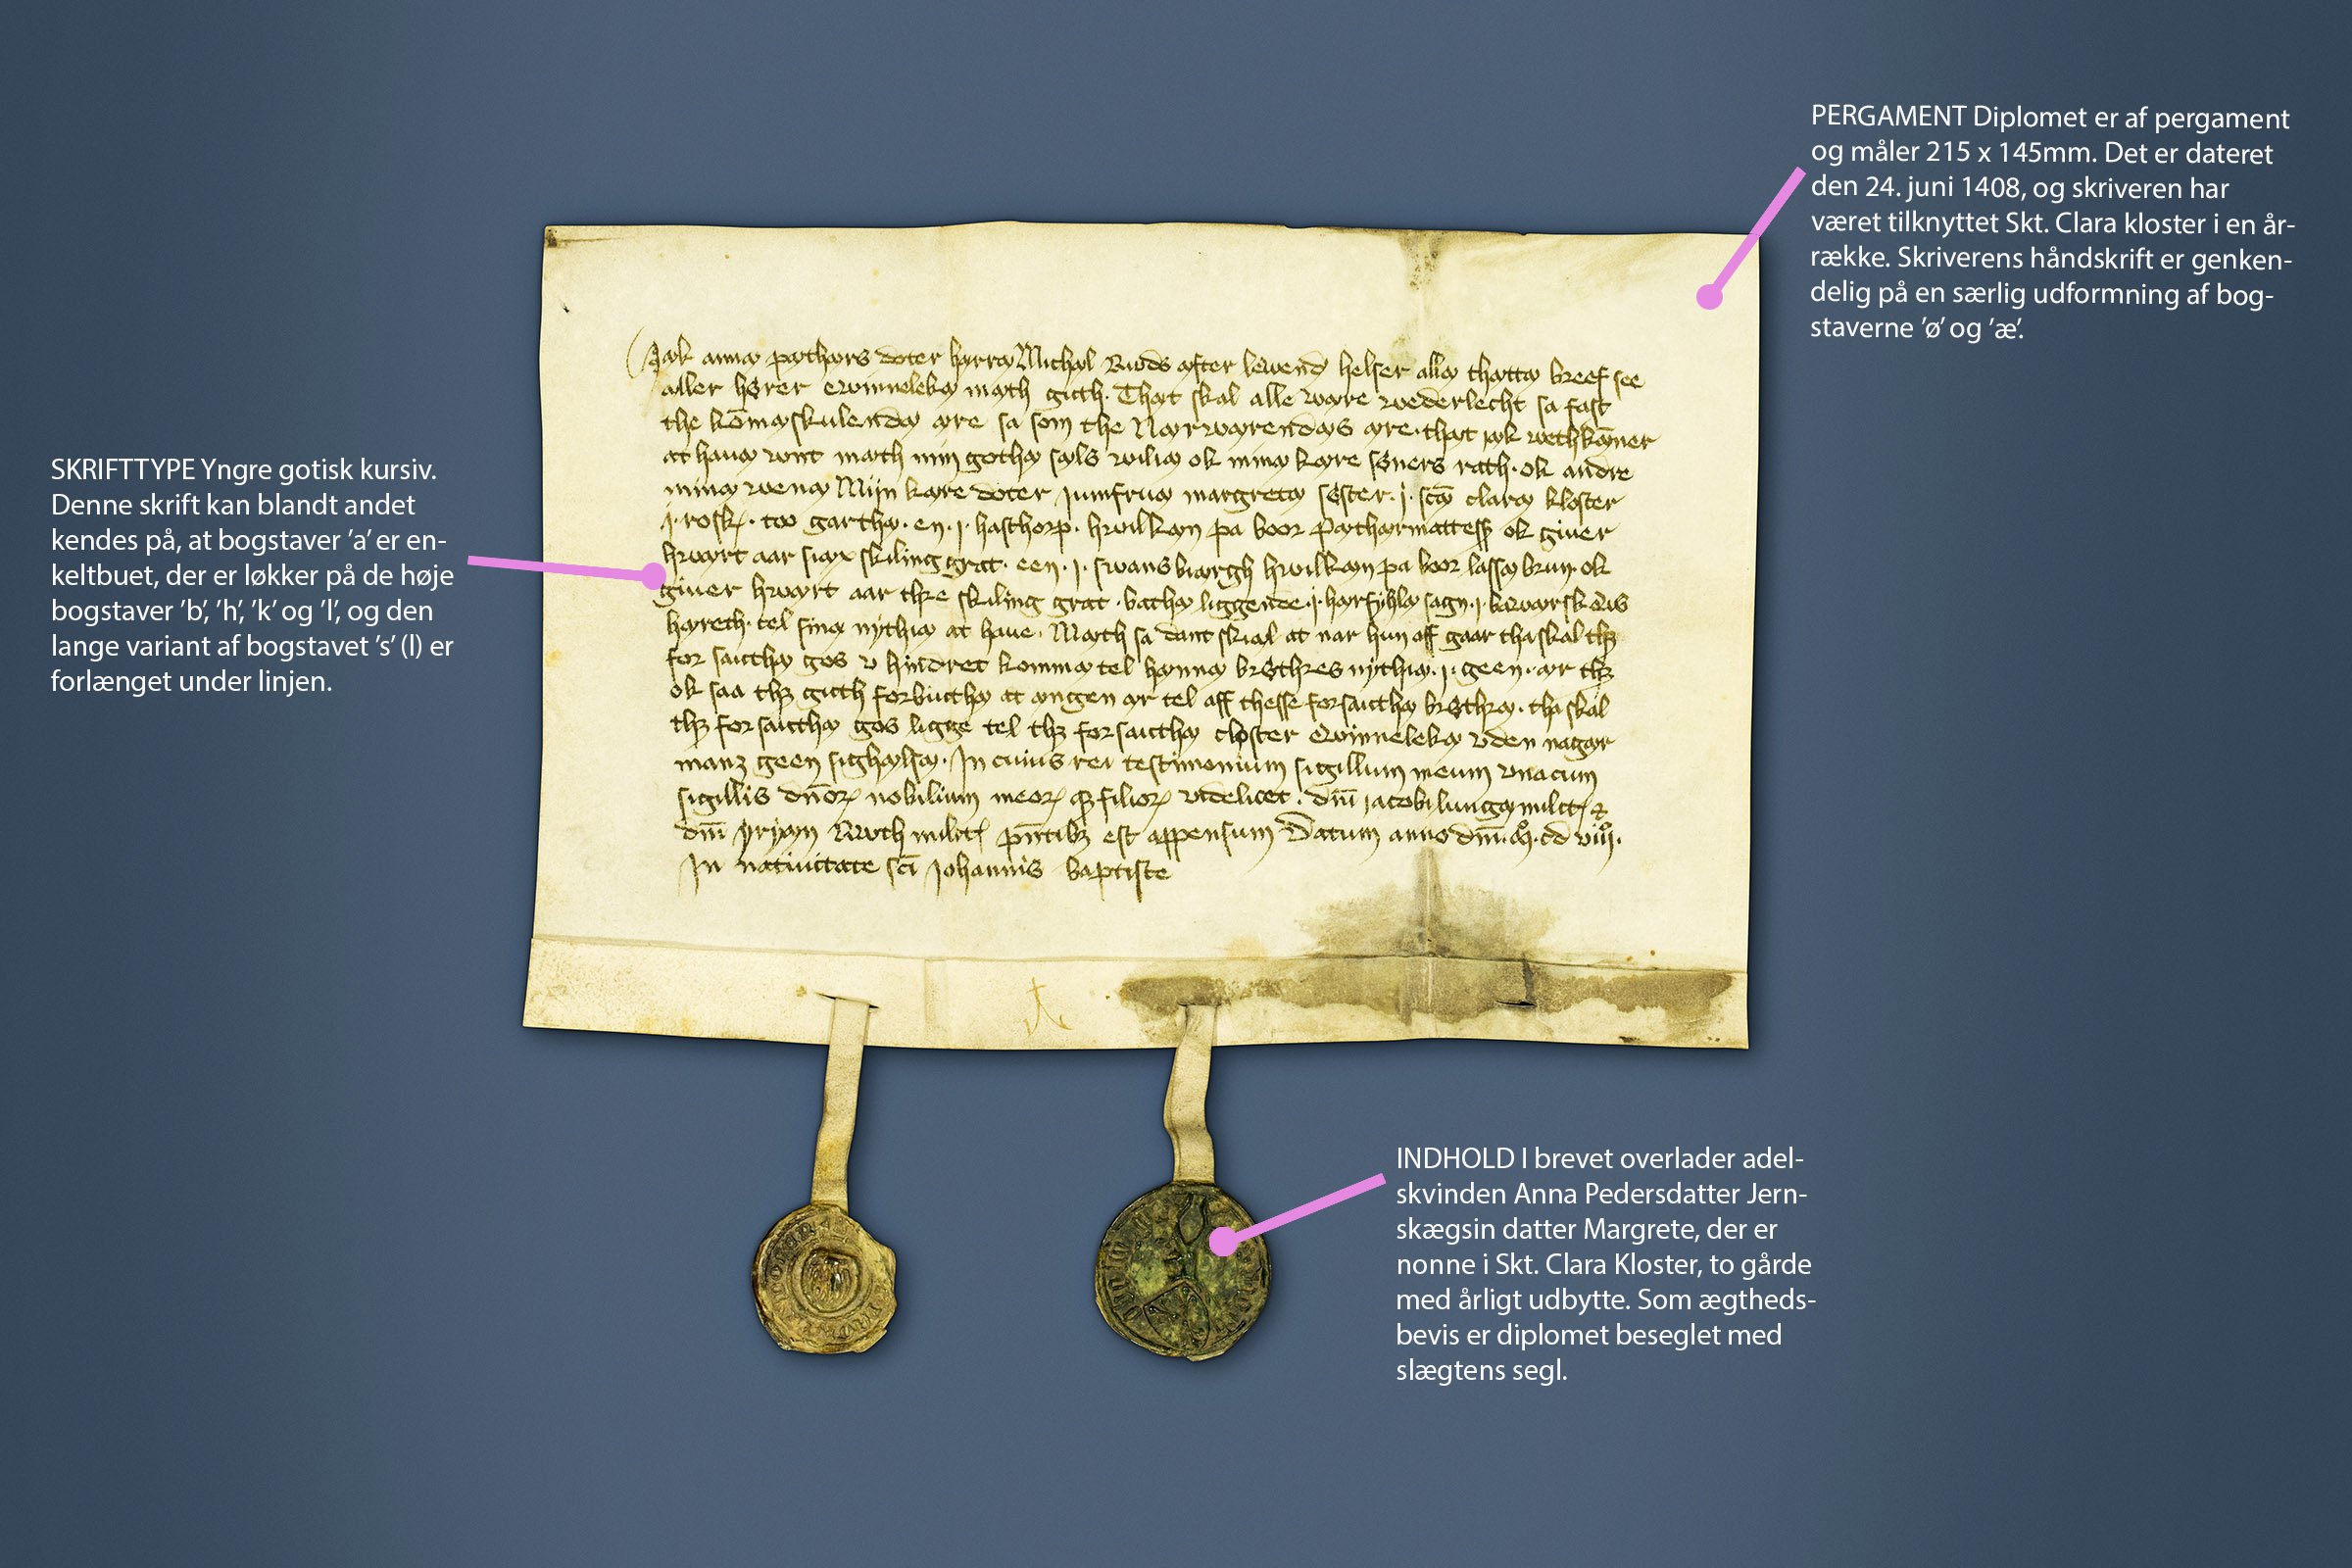 PERGAMENT Diplomet er af pergament
og måler 215 x 145mm. Det er dateret
den 24. juni 1408, og skriveren har
været tilknyttet Skt. Clara kloster i en år-
række. Skriverens håndskrift er genken-
delig på en særlig udformning af bog-
staverne ’ø’ og ’æ’.
SKRIFTTYPE Yngre gotisk kursiv.
Denne skrift kan blandt andet
kendes på, at bogstaver ’a’ er en-
keltbuet, der er løkker på de høje
bogstaver ’b’, ’h’, ’k’ og ’l’, og den
lange variant af bogstavet ’s’ (l) er
forlænget under linjen.
Jæk anna pæthærs doter hærræ Michæl Ruds æfter lewend helser allæ thættæ breef see
aller hører ewinnelekæ mæth guth. Thæt skal alle wære wederlecht sa fast
the komæskulendæ ære sa som the Nærwærendæs ære. thæt jæk wethkæner
at hauæ wnt mæth min gothæ sæls wiliæ ok minæ kære søners rath. ok andre
minæ wenæ Mijn kære doter jumfruæ margretæ søster. j. scæ claræ kloster
j. rosk. too garthæ. en. j. hasthorp. hwilkæn pa boor Pæthær mattess ok giuer
hwært aar siæx skiling grat. een. j. swansbiærgh hwilkæn pa boor lassæ brun. ok
giuer hwært aar thre skiling grat. bathæ liggende. j. hærfyhlæ sagn. j.
hæreth. tel sinæ nythiæ at haue. Mæth sa dant skiæl at nar hun aff gaar tha skal
for saucthæ gos v hindret kommæ tel hænnæ brøthres nythiæ. j. geen. ær
ok saa guth forbiuthæ at ængen ær tel aff thesse forsaucthæ brøthræ. tha skal
for saucthæ gos ligge tel for saucthæ closter ewinnelekæ vden nagær
manz geen sighælsæ. In cuius rei testimonium sigillum meum vnacum
sigillis dnor nobilium meor filior videlicet. dni jacobi lungæ milit &
dni jriæn Rwth milit pntibz est appensum Datum anno dni. mo. cd viiio.
In natiuitate sci Johannis baptiste
INDHOLD I brevet overlader adel-
skvinden Anna Pedersdatter Jern-
skægsin datter Margrete, der er
nonne i Skt. Clara Kloster, to gårde
med årligt udbytte. Som ægtheds-
bevis er diplomet beseglet med
slægtens segl.